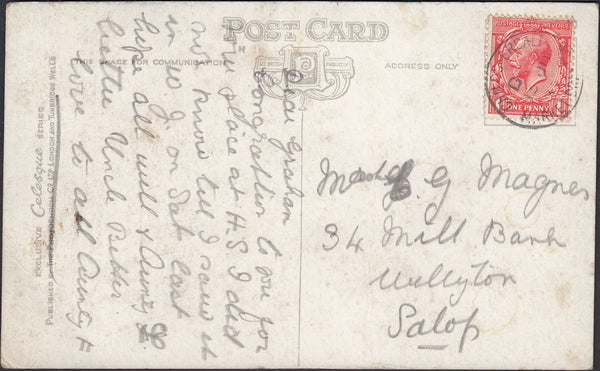 POST CARD
THIS SPACE FOR COMMUNICATION
ADDRESS ONLY
Dear Graham
Congrattion to you for
your place at H.S. I did
not know till I saw it
in W J on Sat last
hope all well & Aunty
better Uncle Better
love to all Aunty F
EXCLUSIVE Celesque SERIES
PUBLISHED BY THE PHOTOCHROM CO. LTD LONDON AND TUNBRIDGE WELLS
POSTAGE REVENUE
ONE PENNY
G Magnes
34 Mill Bank
Wellgton
Salop